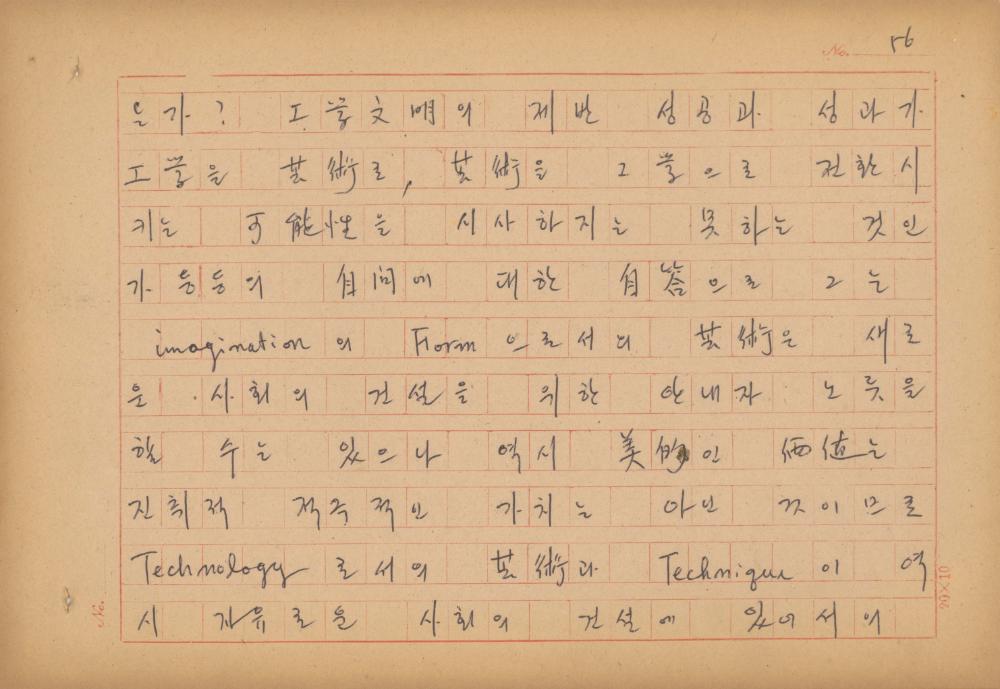 No. 56
은가? 工学文明의 제반 성공과 성과가
工学을 芸術로, 芸術을 工学으로 전환시
키는 可能性을 시사하지는 못하는 것인
가 등등의 自問에 대한 自答으로 그는
imagination의 Form으로서의 芸術은 새로
운 사회의 건설을 위한 안내자 노릇을
할 수는 있으나 역시 美的인 価値는
진취적 적극적인 가치는 아닌 것이므로
Technology로서의 芸術과 Technique이 역
시 자유로운 사회의 건설에 있어서의
No.
20×10